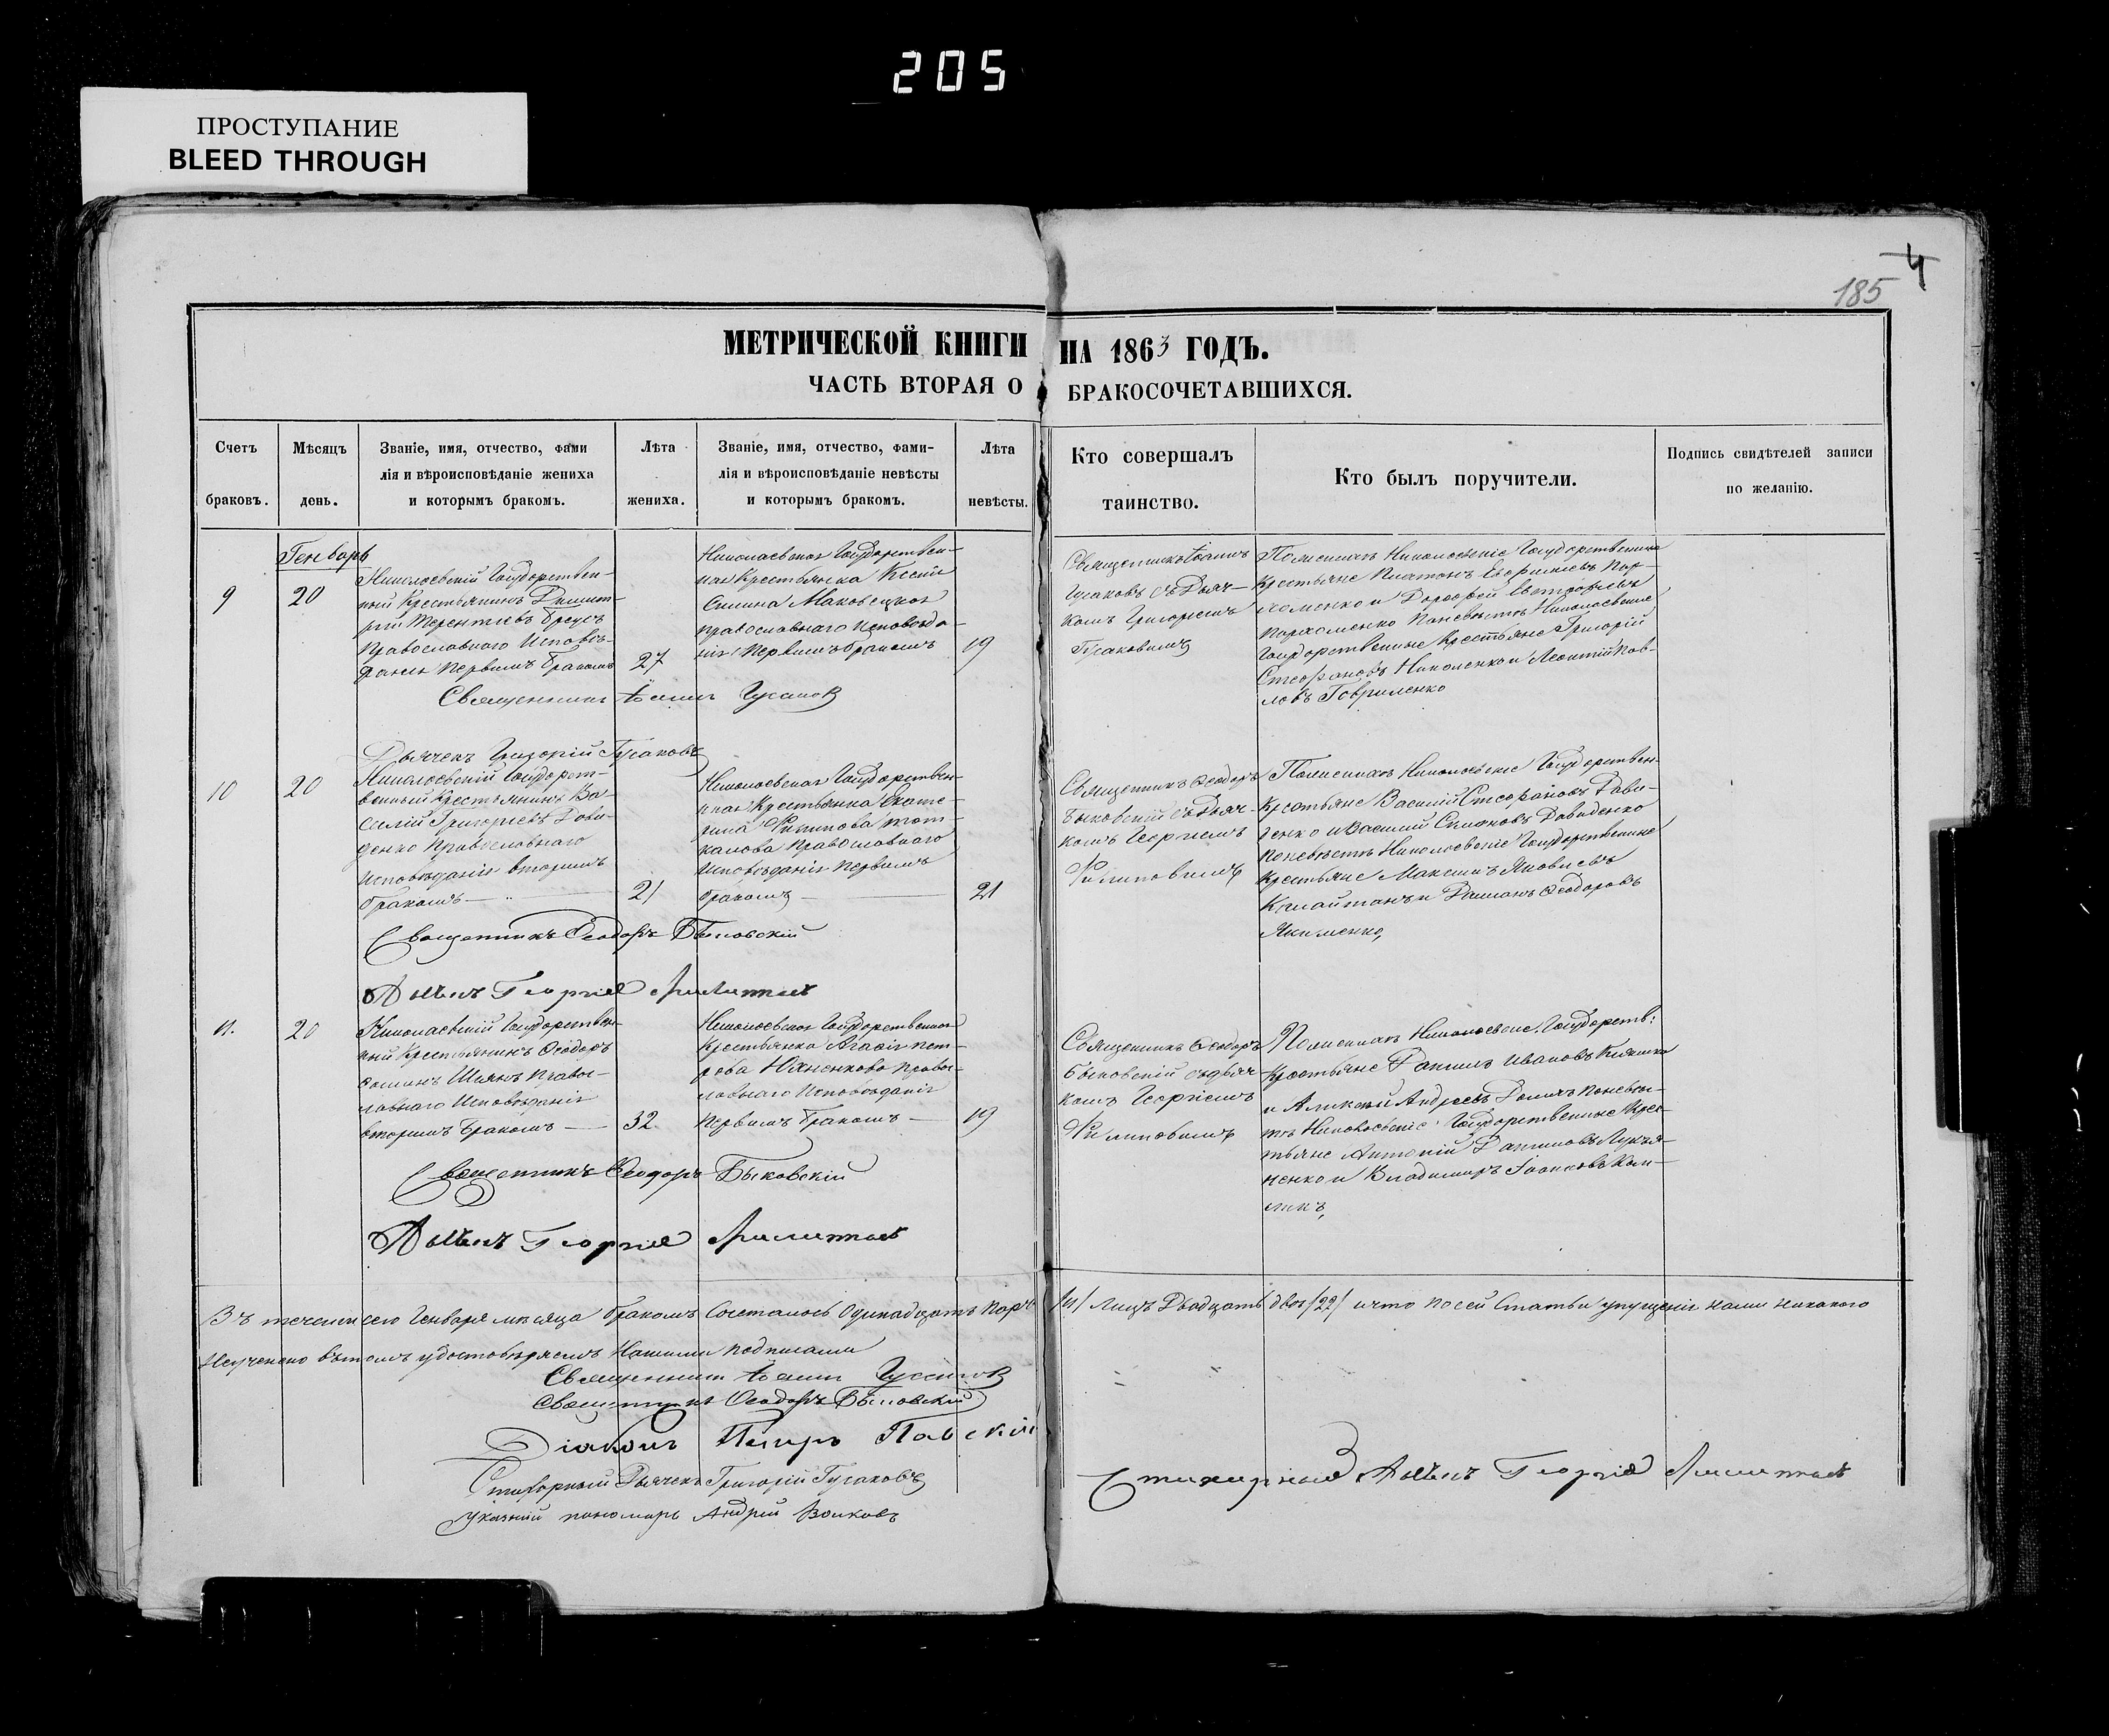 205
ПРОСТУПАНИЕ
BLEED THROUGH
4
185
МЕТРИЧЕСКОЙ КНИГИ НА 1863 ГОДЪ.
ЧАСТЬ ВТОРАЯ О БРАКОСОЧЕТАВШИХСЯ.
Счетъ
браковъ.
Мѣсяцъ
день.
Званіе, имя, отчество, фами
лія и вѣроисповѣданіе жениха
и которымъ бракомъ.
Лѣта
жениха.
Званіе, имя, отчество, фами-
лія и вѣроисповѣданіе невѣсты
и которымъ бракомъ.
Лѣта
невѣсты.
Кто совершалъ
таинство.
Кто былъ поручители.
Подпись свидѣтелей записи
по желанію.
Генварь
9
20
Николаевскій Государствен-
ный Крестьянинъ Димит-
рій Терентіевъ Брусъ
Православнаго Исповѣ-
данія Первымъ Бракомъ
27
Николаевская Государствен-
ная Крестьянка Ксенія
православнаго Исповѣда-
нія Первымъ бракомъ
19
Священникъ Іоаннъ
Гусаковъ съ Дьяч-
комъ Григоріемъ
Гусаковымъ
По женихѣ Николаевскіе Государственные
Крестьяне Платонъ Пар-
хоменко и Дорофей
Пархоменко По невѣстѣ Николаевскіе
Государственные Крестьяне Григорій
Стефановъ Николенко и Леонтій Пав-
ловъ Гавриленко
Священникъ Іоаннъ Гусаковъ
Дьячекъ Григорій Гусаковъ
10
20
Николаевскій Государст-
венный Крестьянинъ Ва-
силій Григорьевъ Дави-
денко Православнаго
Исповѣданія вторымъ
бракомъ
21
Николаевская Государствен-
ная Крестьянка Екате-
рина Филипова
Православнаго
Исповѣданія Первымъ
бракомъ
21
Священникъ Ѳеодоръ
Быковскій съ Дьяч-
комъ Георгіемъ
Филиповымъ
По женихѣ Николаевскіе Государствен-
Крестьяне Василій Стефановъ Дави-
денко и Василій Давиденко
По невѣстѣ Николаевскіе Государственные
Крестьяне Максимъ Яковлевъ
и Даміанъ Ѳеодоровъ
Якименко,
Священникъ Ѳеодоръ Быковскій
Дьячекъ Георгій
11.
20
Николаевскій Государствен-
ный Крестьянинъ Ѳеодоръ
Правос-
лавнаго Исповѣданія
вторымъ Бракомъ
32
Николаевская Государственная
Крестьянка Агафія Пет-
рова Правос-
лавнаго Исповѣданія
Первымъ Бракомъ
19
Священникъ Ѳеодоръ
Быковскій съ дьяч-
комъ Георгіемъ
Филиповымъ
По женихѣ Николаевскіе Государств:
Крестьяне Данило Ивановъ
и Алексѣй Андреевъ По невѣс-
тѣ Николаевскіе Государственные Крес-
тьяне Антоній Лукья-
ненко и Владимиръ
Священникъ Ѳеодоръ Быковскій
Дьячекъ Георгій
Въ теченіи сего Генваря мѣсяца бракомъ Сочеталось Одинадцать Паръ /11/ лицъ Двадцать двое /22/ и что по сей Статьи упущенія нами никакого
Неучинено въ томъ удостовѣряемъ Нашими подписами
Священникъ Іоаннъ Гусаковъ
Священникъ Ѳеодоръ Быковскій
Діаконъ Петръ
Стихарный Дьячекъ Григорій Гусаковъ
Указный пономарь Андрей Волковъ
Стихарный Дьячекъ Георгій